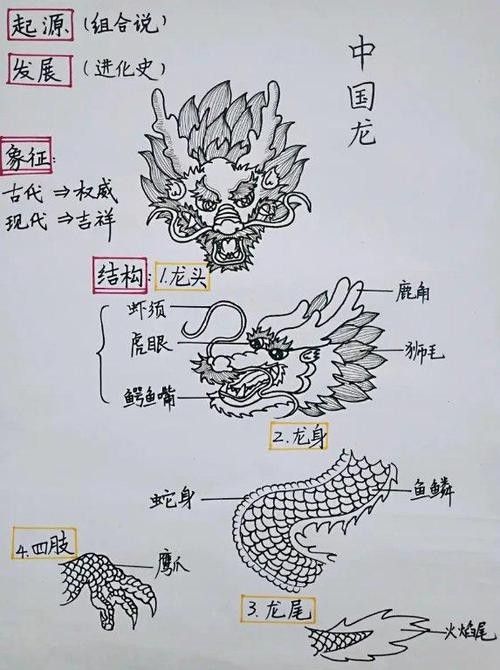 起源(组合说)
发展(进化史)
中国龙
象征:
古代⇒权威
现代⇒吉祥
结构:1.龙头
虾须
鹿角
虎眼
狮毛
鳄鱼嘴
2.龙身
蛇身
鱼鳞
4.四肢
鹰爪
3.龙尾
火焰尾